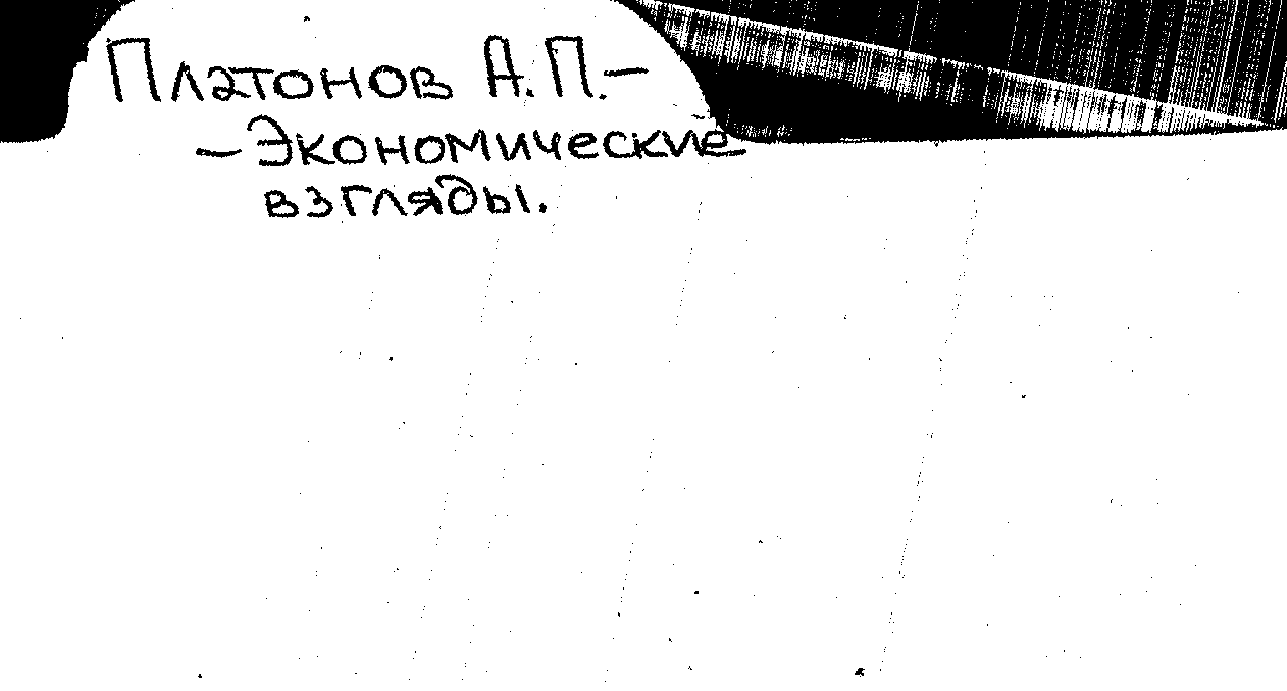 Платонов А.П.–
– Экономические
взгляды.